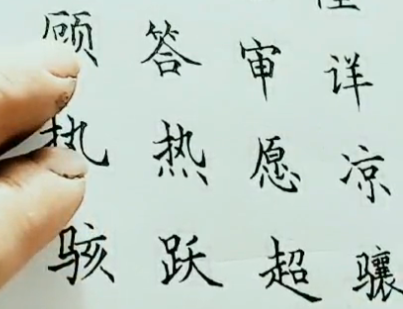 顾答审详
执热愿凉
骇跃超骧